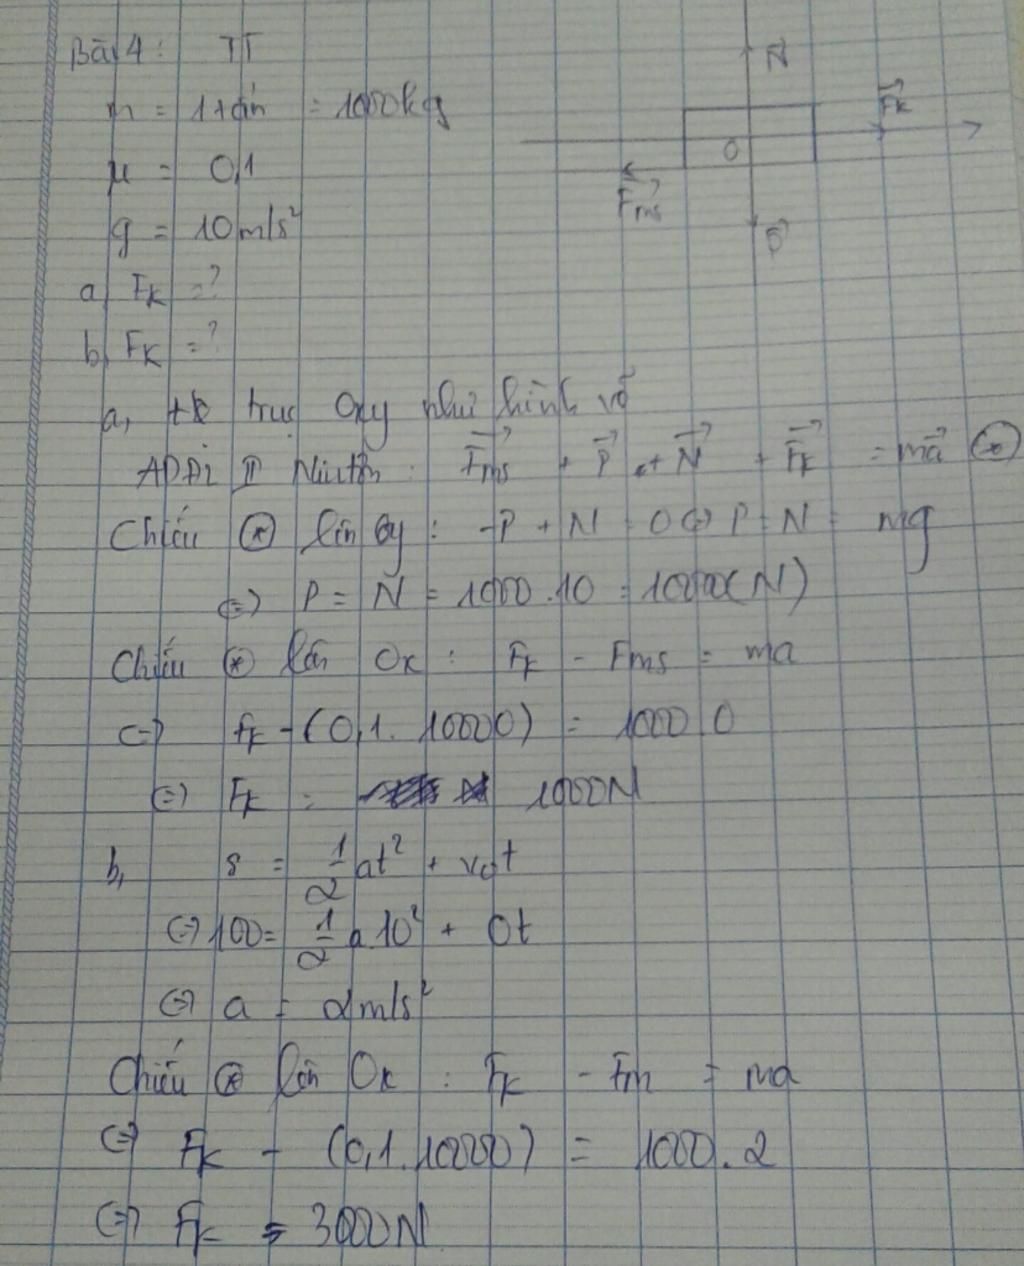 Bài 4: TT
m = 1 tấn = 1000kg
N
Fk
μ = 0,1
O
Fms
g = 10m/s²
P
a, Fk = ?
b, Fk = ?
a, trục Oxy như hình vẽ
ADĐL II Niutơn: Fms + P + N + Fk = ma (*)
Chiếu (*) lên Oy: -P + N = 0 <=> P = N = mg
<=> P = N = 1000.10 = 10000(N)
Chiếu (*) lên Ox: Fk - Fms = ma
<=> Fk - (0,1. 10000) = 1000.0
<=> Fk = 1000N
b, s = 1/2 at² + v₀t
<=> 100 = 1/2 a 10² + 0t
<=> a = 2m/s²
Chiếu (*) lên Ox: Fk - Fm = ma
<=> Fk - (0,1.10000) = 1000.2
<=> Fk = 3000N